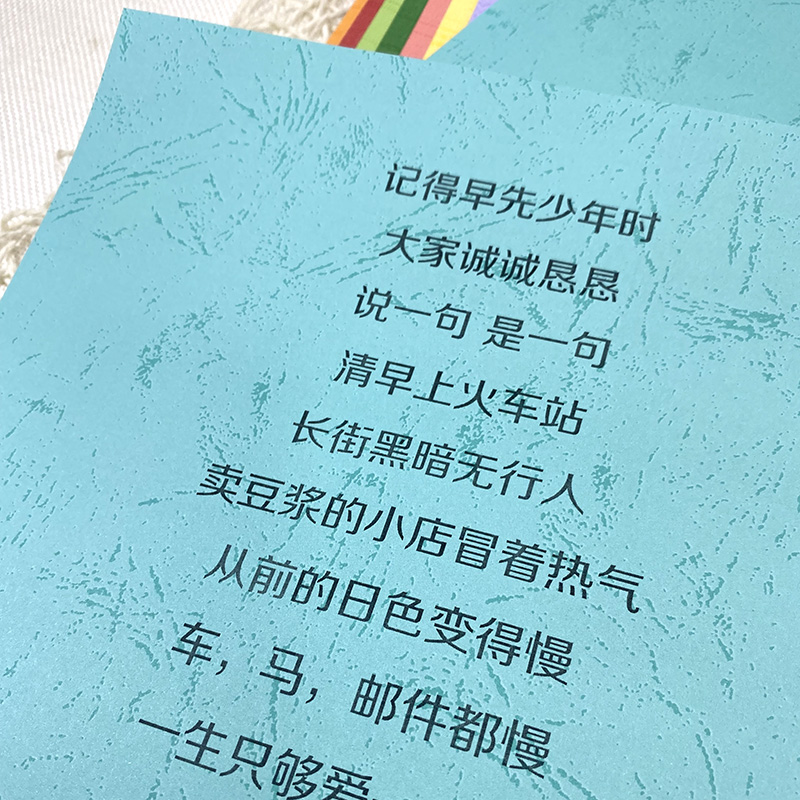 记得早先少年时
大家诚诚恳恳
说一句 是一句
清早上火车站
长街黑暗无行人
卖豆浆的小店冒着热气
从前的日色变得慢
车，马，邮件都慢
一生只够爱